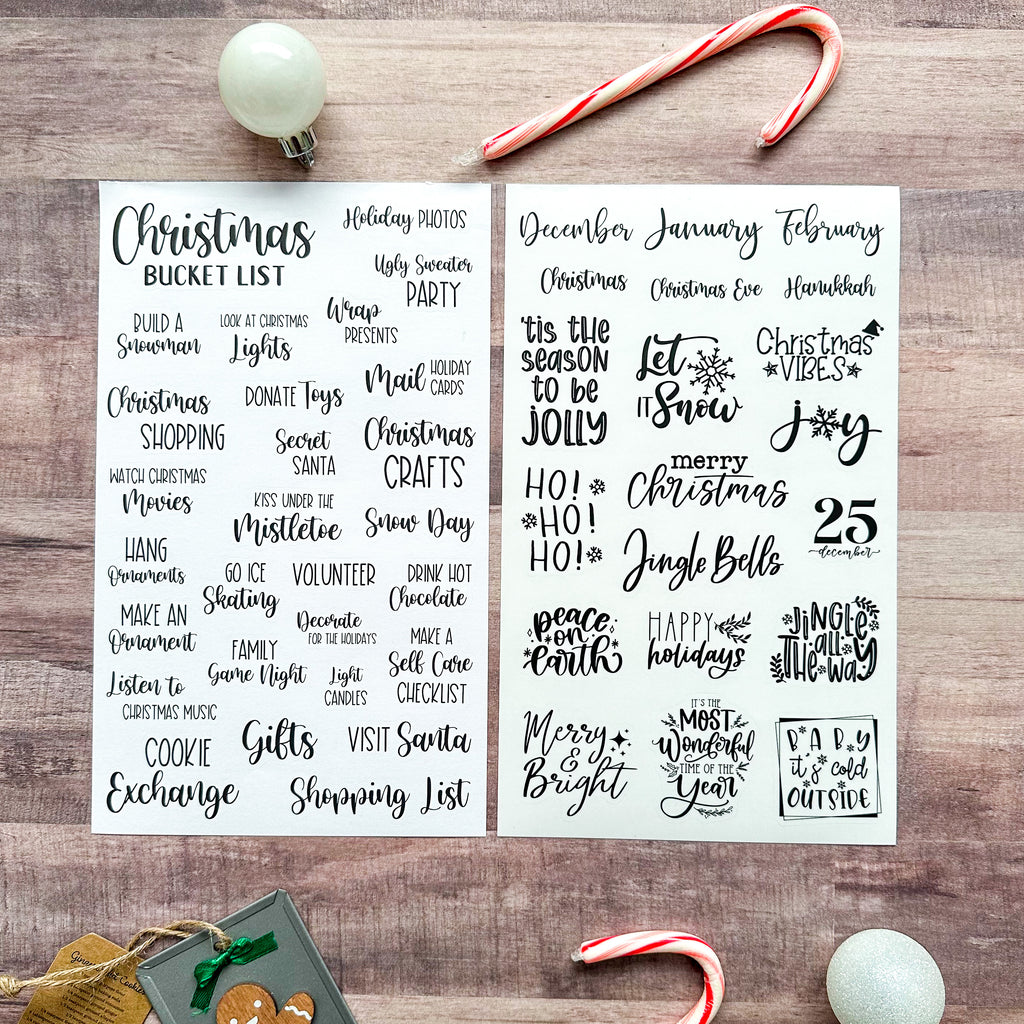 Christmas
BUCKET LIST
Holiday PHOTOS
Ugly Sweater
PARTY
Wrap
PRESENTS
BUILD A
Snowman
LOOK AT CHRISTMAS
Lights
Mail HOLIDAY
CARDS
Christmas
SHOPPING
DONATE Toys
Secret
SANTA
Christmas
CRAFTS
WATCH CHRISTMAS
Movies
KISS UNDER THE
Mistletoe
Snow Day
HANG
Ornaments
GO ICE
Skating
VOLUNTEER
DRINK HOT
Chocolate
MAKE AN
Ornament
Decorate
FOR THE HOLIDAYS
FAMILY
Game Night
MAKE A
Self Care
CHECKLIST
Listen to
CHRISTMAS MUSIC
Light
CANDLES
COOKIE
Exchange
Gifts
VISIT Santa
Shopping List
December January February
Christmas Christmas Eve Hanukkah
'tis the
season
to be
jolly
Let
IT Snow
Christmas
VIBES
joy
HO!
HO!
HO!
merry
Christmas
25
december
Jingle Bells
peace
on
earth
HAPPY
holidays
JINGLE
all
THE way
Merry
&
Bright
IT'S THE
MOST
Wonderful
TIME OF THE
Year
BABY
it's cold
OUTSIDE